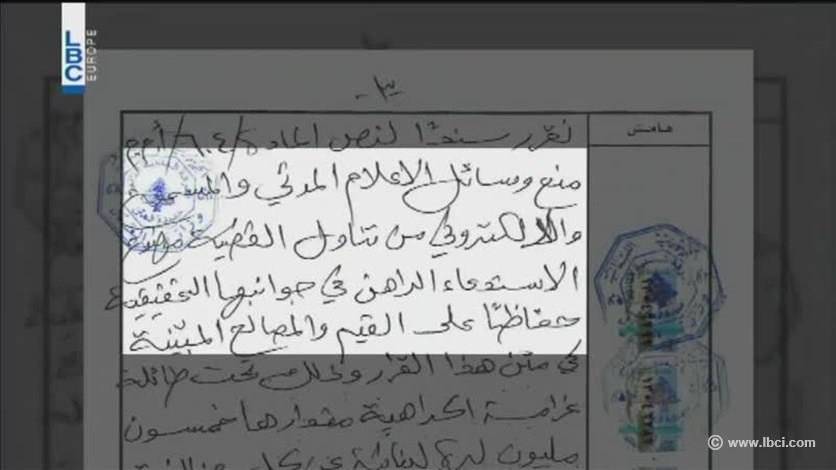 LBC
EUROPE
- ٣ -
هامش
نقرر سندًا لنص المادة ٦٠٤/أ.م.م.
منع وسائل الاعلام المرئي والمسموع
والالكتروني من تناول القضية موضوع
الاستدعاء الراهن في جوانبها التحقيقية
حفاظًا على القيم والمصالح المبيّنة
في متن هذا القرار وذلك تحت طائلة
غرامة اكراهية مقدارها خمسون
مليون ليرة لبنانية عن كل
© www.lbci.com